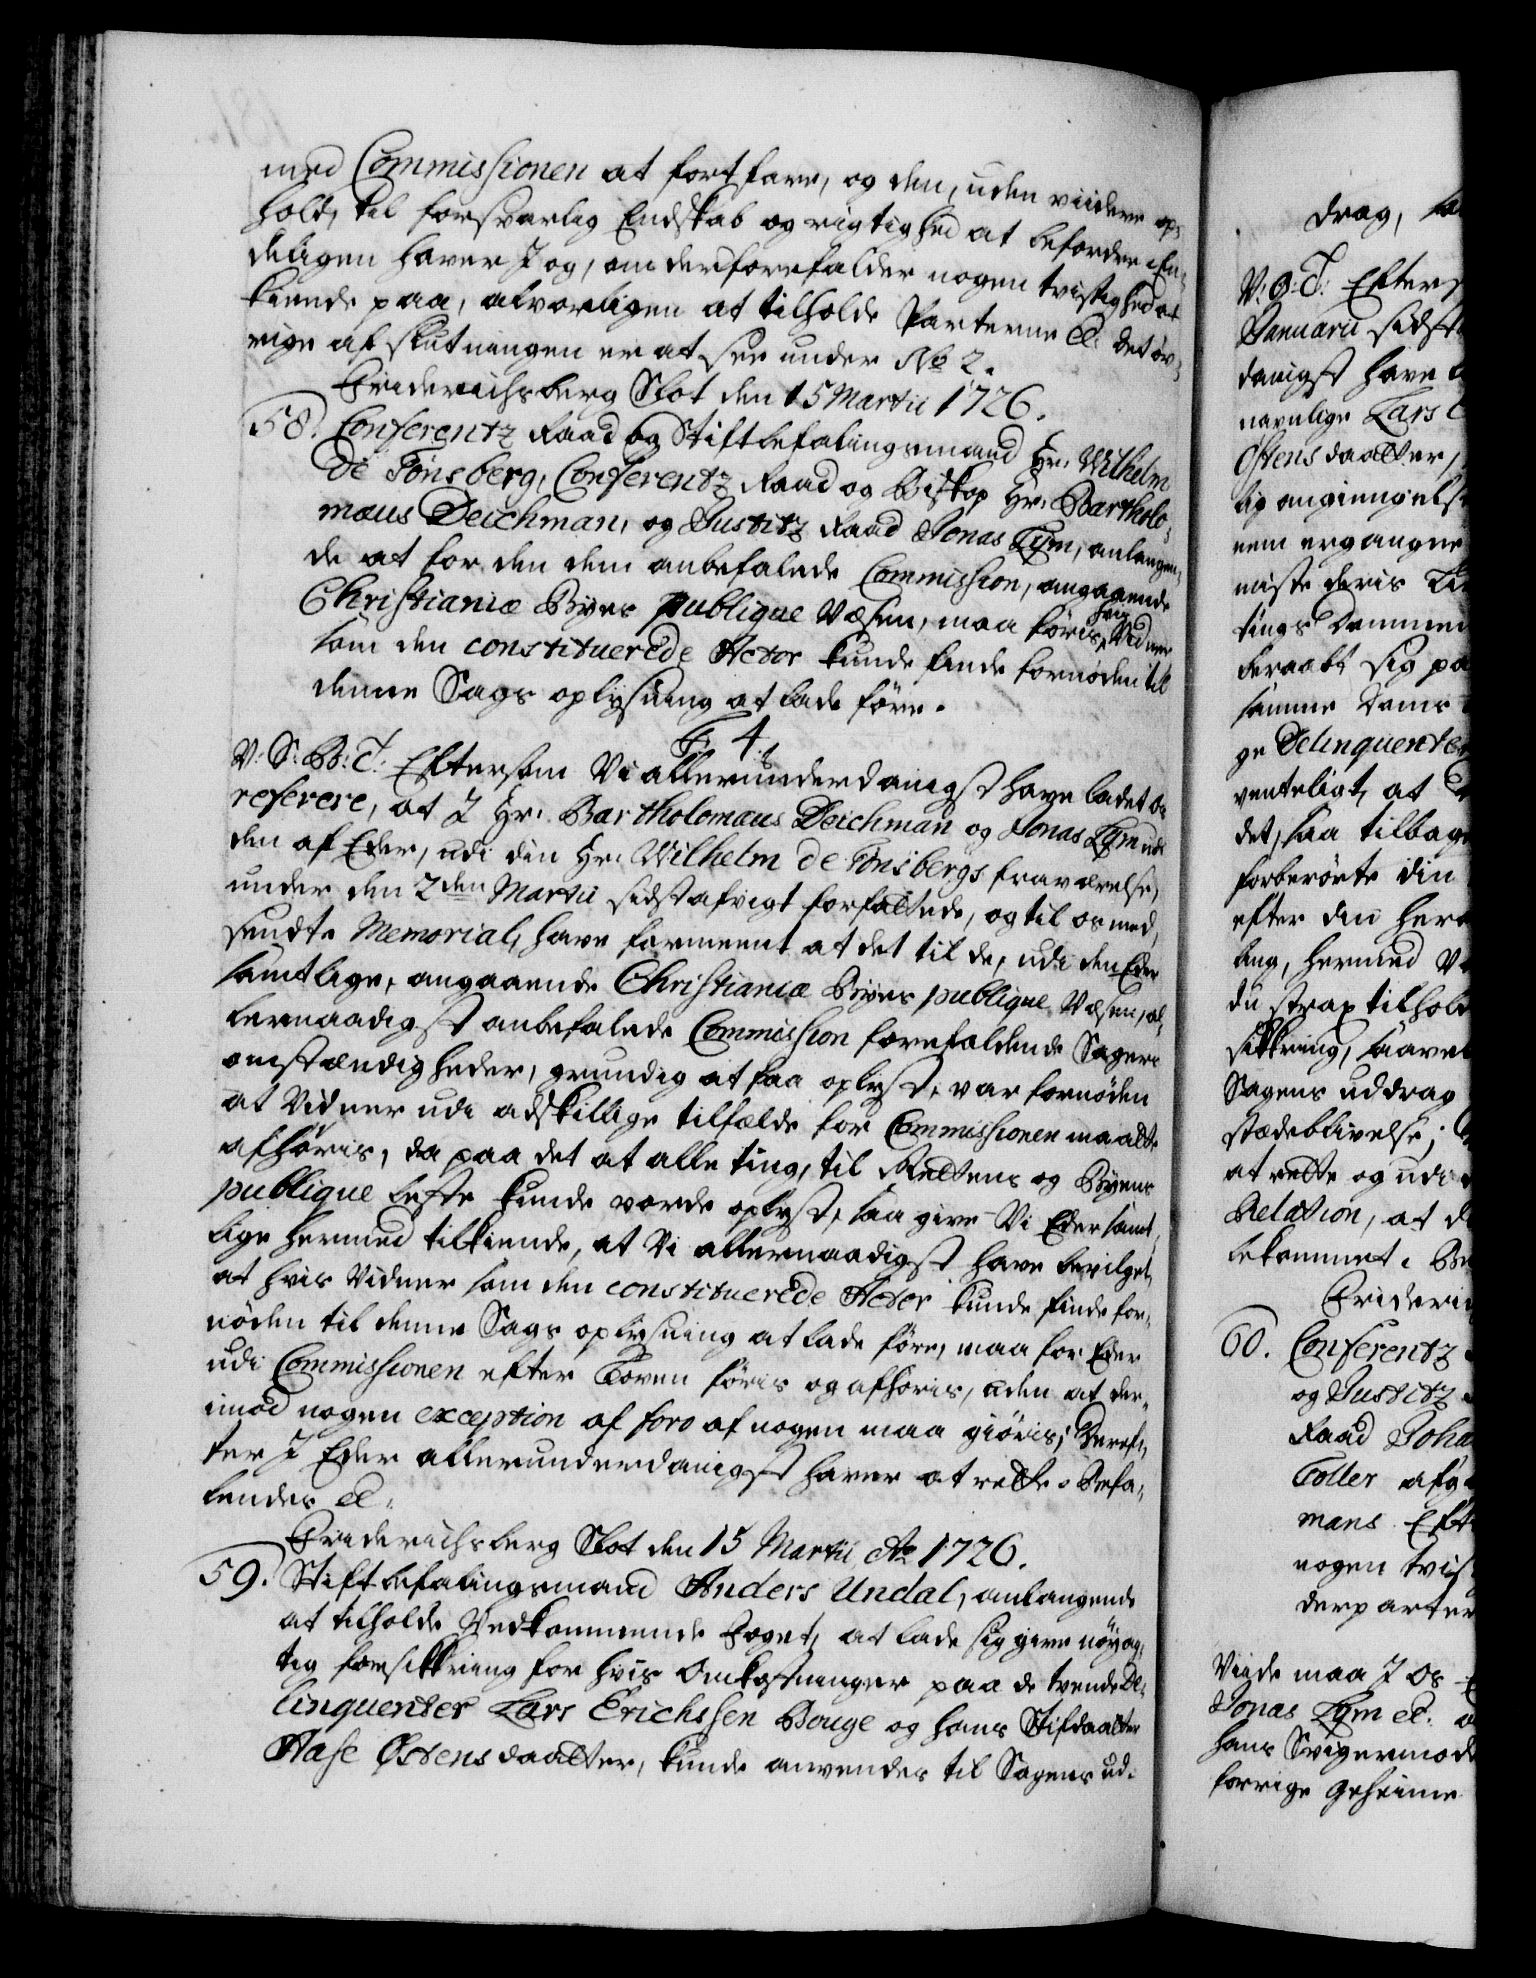 med Commissionen at fortfare, og den, uden viidere op,
hold, til forsvarlig Endskab og rigtighed at befordre. En,
deligen haver I og, om der forefalder nogen tvistighed at
kiende paa, alvorligen at tilholde Parterne etc. det øv,
rige af slutningen er at see under No 2.
Friderichsberg Slot den 15 Martii 1726.
58. Conferentz Raad og Stiftbefalingsmand Hr. Wilhelm
de Tönsberg, Conferentz Raad og Biskop Hr. Bartholo,
mæus Deichman, og Justitz Raad Jonas Lym, anlangen,
de at for den dem anbefalede Commission, angaaende
Christianiæ Byes publique Væsen, maa föris hvis Vidner
som den constituerede Actor kunde finde fornöden til
denne Sags oplysning at lade före.
F. 4.
V: S: B: T: Eftersom Vi allerunderdanigst have ladet os
referere, at I Hr. Bartholomæus Deichman og Jonas Lym udi
den af Eder, udi din Hr. Wilhelm de Tönsbergs fraværelse,
under den 2den Martii sidstafvigt forfattede, og til os ned,
sendte Memorial, have formeent at det til de, udi den Eder
samtlige, angaaende Christianiæ Byes publique Væsen, al,
lernaadigst anbefalede Commission forefaldende Sagers
omstændigheder, grundig at faa oplyst, var fornöden
at Vidner udi adskillige tilfælde for Commissionen maatte
afhöris, da paa det at alle ting, til Rettens og Byens
publique beste kunde vorde oplyst, saa give Vi Eder samt,
lige hermed tilkiende, at Vi allernaadigst have bevilget,
at hvis Vidner som den constituerede Actor kunde finde for,
nöden til denne Sags oplysning at lade före, maa for Eder
udi Commissionen efter Loven föris og afhöris, uden at der,
imod nogen exception af foro af nogen maa giöris; Deref,
ter I Eder allerunderdanigst haver at rette. Befa,
lendes etc.
Friderichsberg Slot den 15 Martii Ao 1726.
59. Stiftbefalingsmand Anders Undal, anlangende
at tilholde Vedkommende Foget, at lade sig give nöyag,
tig forsikkring for hvis Omkostninger paa de tvende De,
linquenter Lars Erichssen Bouge og hans Stifdaatter
Aase Østensdaatter, kunde anvendes til Sagens ud,
drag,
V: G: T: Efters
Januarii sidst
danigst have
navnlige Lars
Østensdaatter,
lig omgiengelse
nem ergangne
miste deris Li
tings Dommen
beraabt sig pa
samme Doms
ge Delinquenter
venteligt, at
det, saa tilbage
forberörte din
efter den her
ling, hermed V
du strax tilhold
sikkring, saavel
Sagens uddrag
stædeblivelse;
at rette og udi
Relation, at d
bekommet. Be
Frideri
60. Conferentz
og Justitz
Raad Joha
Toller afg
mans Eft
nogen tvis
der parter
Viide maa I Os
Jonas Lym etc.
hans Svigermode
forrige Geheime